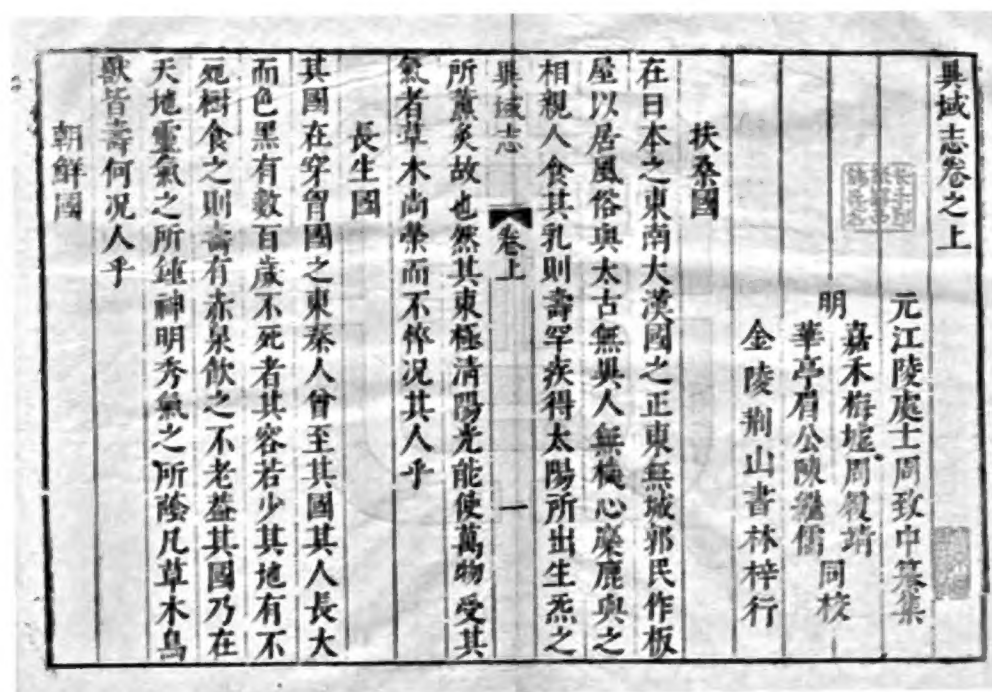 異域志卷之上
元江陵處士周致中纂集
嘉禾梅墟周履靖
明 同校
華亭眉公陳繼儒
金陵荊山書林梓行
扶桑國
在日本之東南大漢國之正東無城郭民作板
屋以居風俗與太古無異人無機心麋鹿與之
相親人食其乳則壽罕疾得太陽所出生炁之
異域志 卷上 一
所薰炙故也然其東極清陽光能使萬物受其
氣者草木尚榮而不悴況其人乎
長生國
其國在穿胷國之東秦人曾至其國其人長大
而色黑有數百歲不死者其容若少其地有不
死樹食之則壽有赤泉飲之不老葢其國乃在
天地靈氣之所鍾神明秀氣之所蔭凡草木鳥
獸皆壽何況人乎
朝鮮國